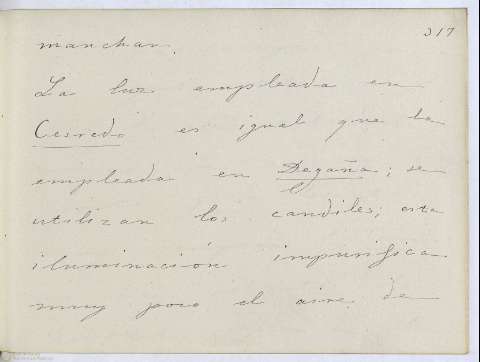 317
manchar.
La luz empleada en
Cesredo es igual que la
empleada en Degaña; se
utilizan los candiles; esta
iluminación impurifica
muy poco el aire de